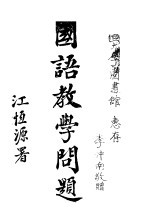 圖書館 惠存
李
敬贈
國語教學問題
江恆源著